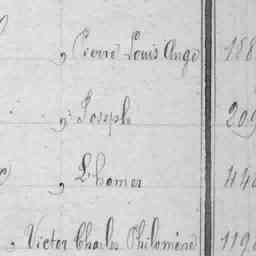 , Pierre Louis Ange 158
, Joseph 209
, Lhomer 440
, Victor Charles Philomène 119